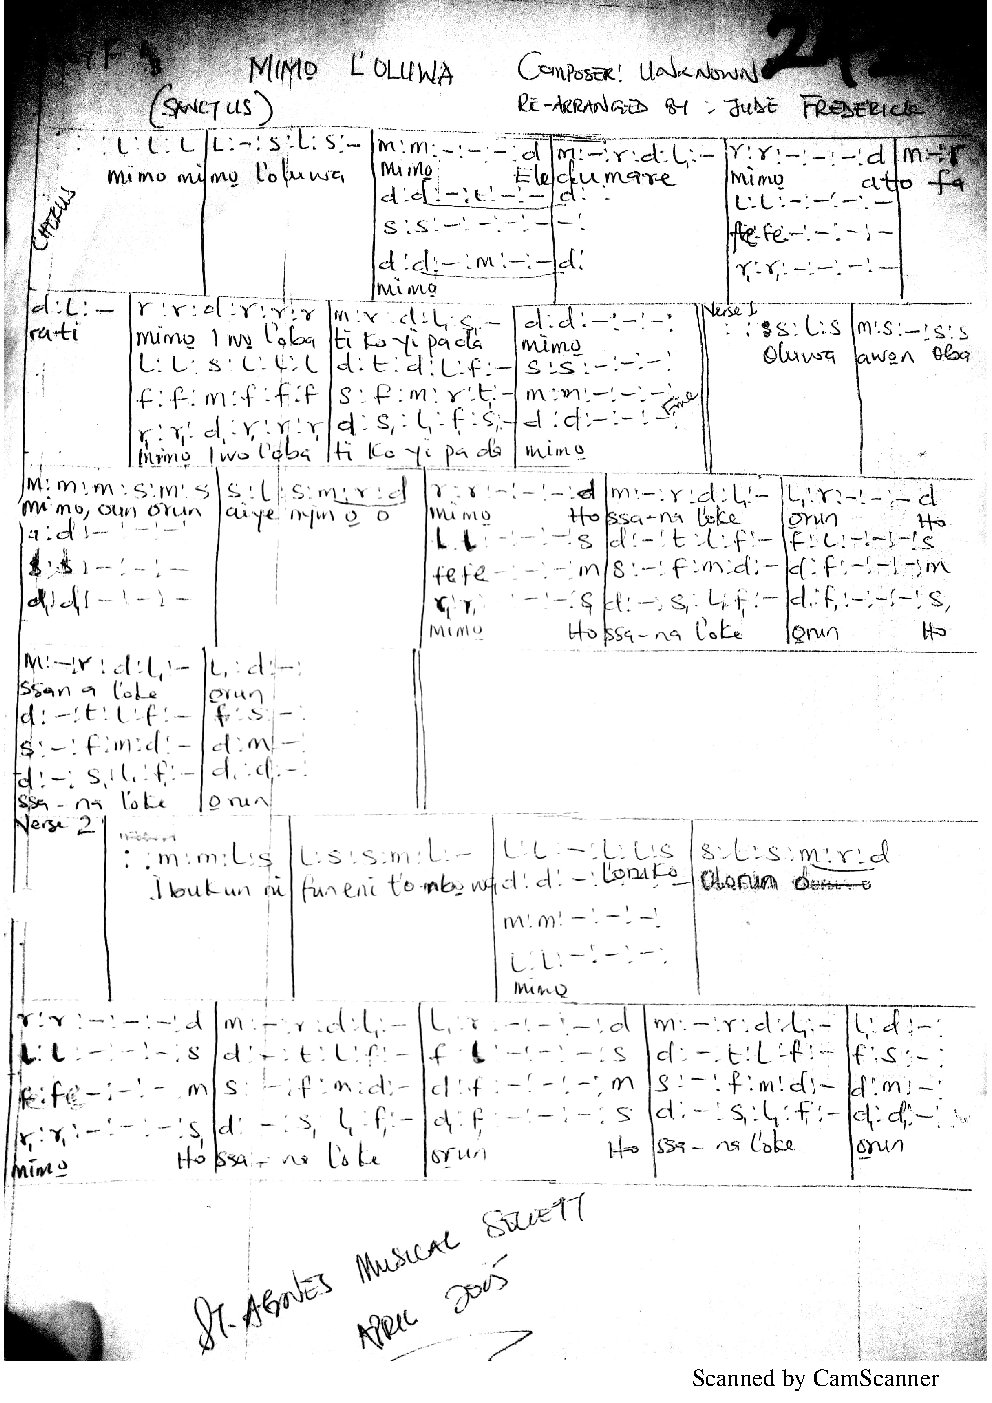 MIMO L'OLUWA COMPOSER: UNKNOWN
(SANCTUS) RE-ARRANGED BY : JUDE FREDERICK
CHORUS
: : L : L : L | L : - : s : L : s : - | m : m : - : - : - : d | m : - : r : d : L, : - | r : r : - : - : - : d | m : - : r
mimo mimo l'oluwa mimo Eledumare mimo ato fa
d : d : - : t : - : - | d : L : L : - : - : - : -
s : s : - : - : - : - fe : fe : - : - : - : -
d : d : - : m : - : - | d : r, : r, : - : - : - : -
mimo
d : L : - | r : r : d : r : r : r | m : r : d : L, : s, : - | d : d : - : - : - : Verse 1 : : s : s : L : s | m : s : - : s : s
ra-ti mimo Iwo l'oba ti ko yi pada mimo Oluwa awon Oba
L : L : s : L : L : L | d : t : d : L : f : - | s : s : - : - : - :
f : f : m : f : f : f | s : f : m : r : t, : - | m : m : - : - : - : Fine
r, : r, : d, : r, : r, : r, | d : s, : L, : f, : s, : - | d : d : - : - : - :
mimo Iwo l'oba ti ko yi pada mimo
m : m : m : s : m : s | s : L : s : m : r : d | r : r : - : - : - : d | m : - : r : d : L, : - | L, : r : - : - : - : d
mimo, oun orun aiye mimo Ho ssa-na l'oke orun Ho
L L : - : - : - : s | d : - : t : L : f : - | f : L : - : - : - : s
fe fe - : - : - : m | s : - : f : m : d : - | d : f : - : - : - : m
r, r, : - : - : - : s, | d : - : s, : L, : f, : - | d : f, : - : - : - : s,
mimo Ho ssa-na l'oke orun Ho
m : - : r : d : L, : - | L, : d : - :
ssan a l'oke orun
d : - : t : L : f : - | f : s : - :
s : - : f : m : d : - | d : m : - :
d : - : s, : L, : f, : - | d, : d, : - :
ssa-na l'oke orun
Verse 2
: : m : m : L : s | L : s : s : m : L : - | L : L : - : L : L : s | s : L : s : m : r : d
Ibukun ni fun eni d : d : - : l'oruko Olorun
m : m : - : - : - :
L : L : - : - : - :
mimo
r : r : - : - : - : d | m : - : r : d : L, : - | L, : r : - : - : - : d | m : - : r : d : L, : - | L, : d : - :
L : L : - : - : - : s | d : - : t : L : f : - | f : L : - : - : - : s | d : - : t : L : f : - | f : s : - :
fe : fe : - : - : - m | s : - : f : m : d : - | d : f : - : - : - : m | s : - : f : m : d : - | d : m : - :
r, : r, : - : - : - : s, | d : - : s, : L, : f, : - | d : f, : - : - : - : s | d : - : s, : L, : f, : - | d, : d, : - :
mimo Ho ssa-na l'oke orun Ho ssa-na l'oke orun
ST. AGNES MUSICAL
APRIL 2005
Scanned by CamScanner